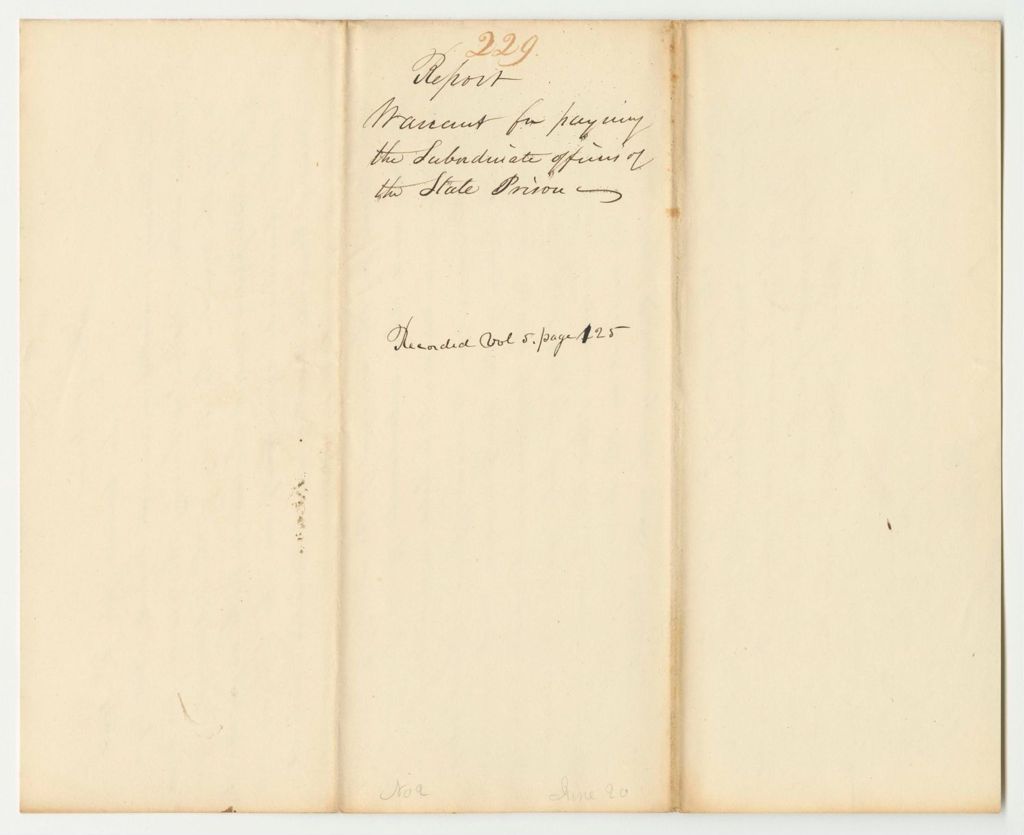 229.
Report
Warrant for paying
the Subordinate officers of
the State Prison
Recorded Vol 5. page 125
No 2 June 20